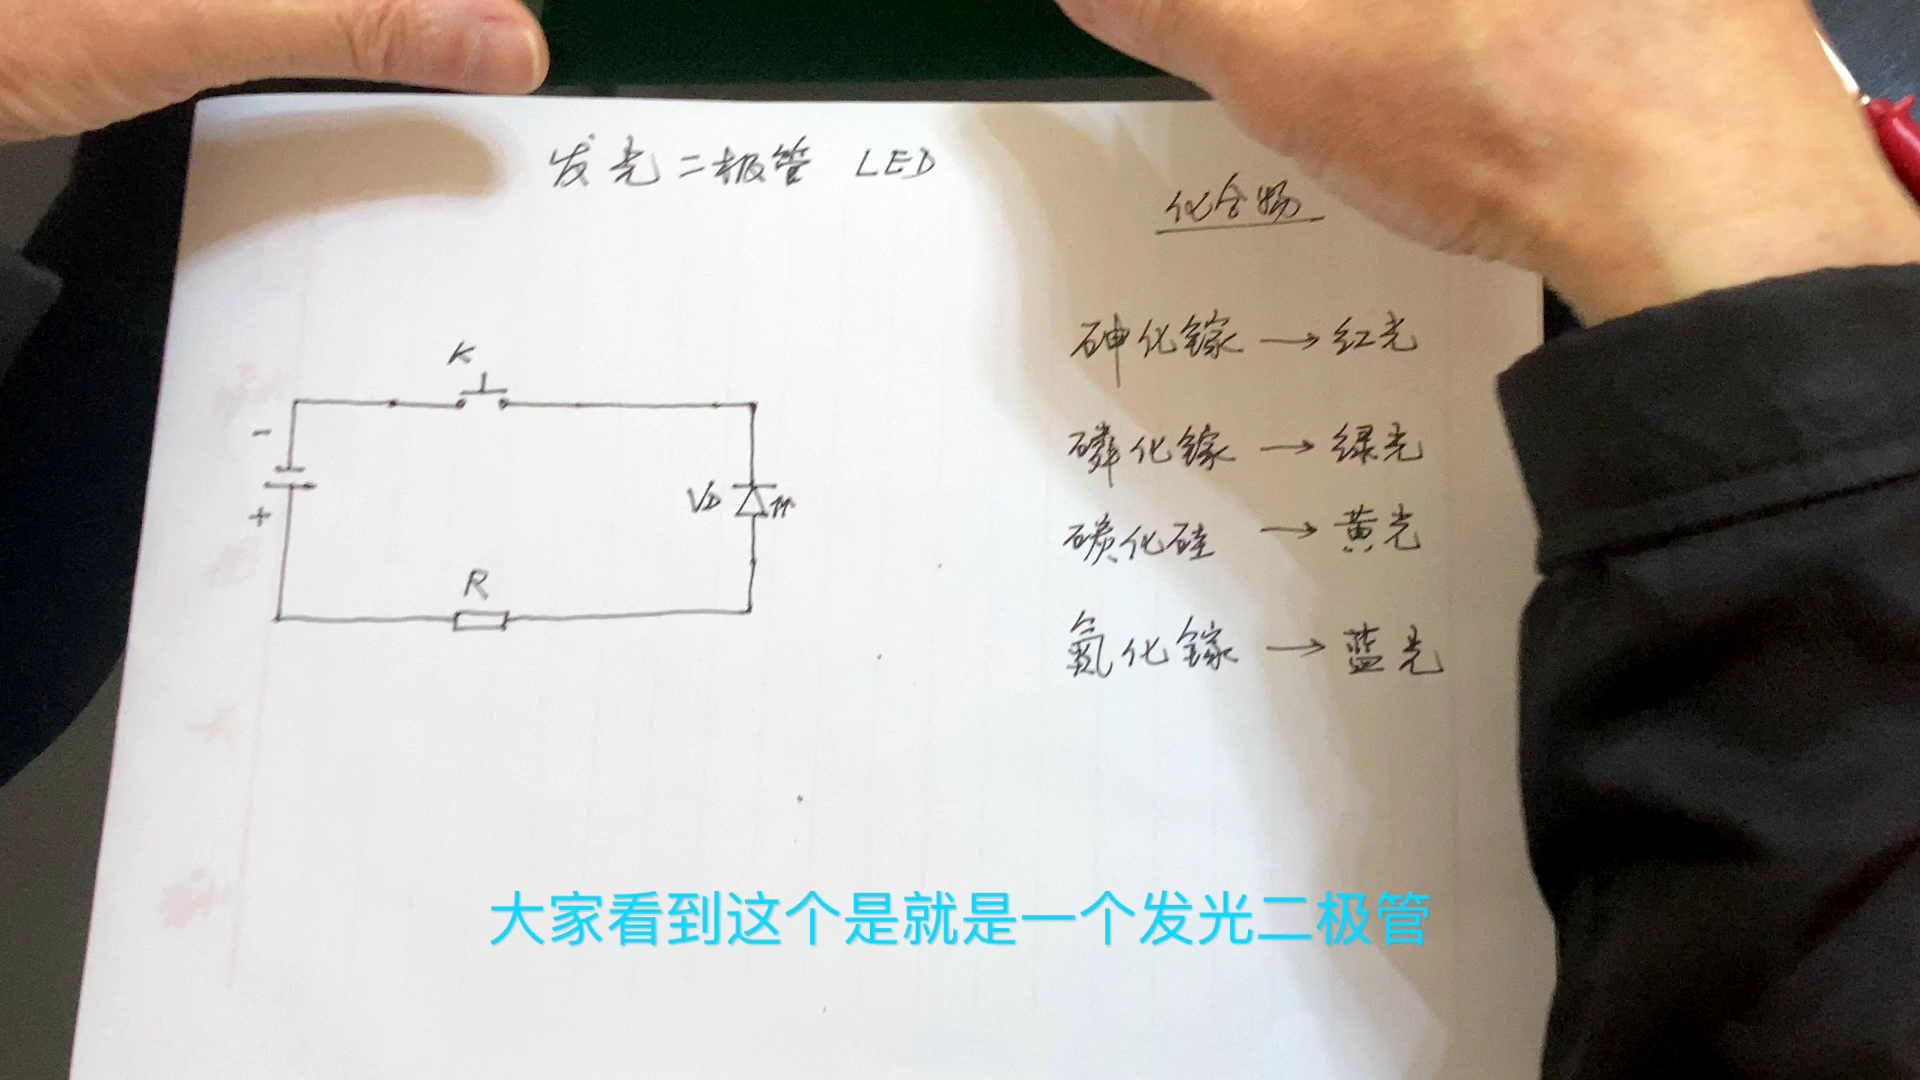 发光二极管 LED
化合物
K
-
+
VD
R
砷化镓→红光
磷化镓→绿光
碳化硅→黄光
氮化镓→蓝光
大家看到这个是就是一个发光二极管